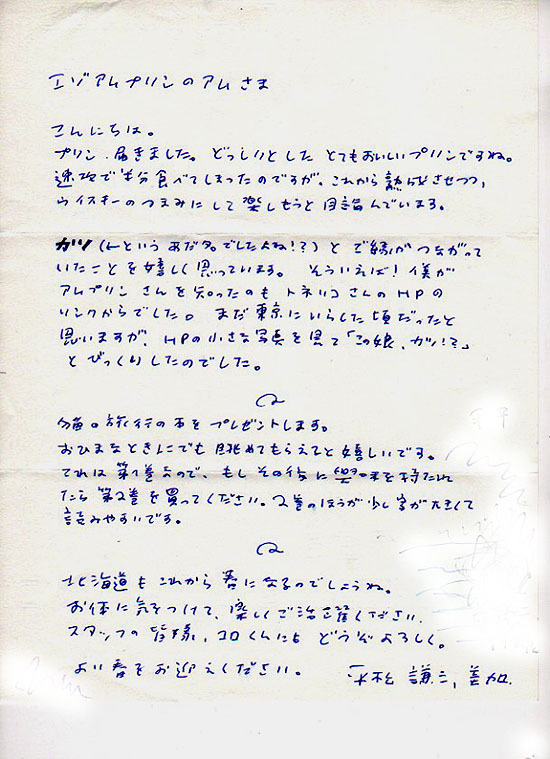 エゾアムプリンのアムさま
こんにちは。
プリン、届きました。どっしりとした とてもおいしいプリンですね。
速攻で半分食べてしまったのですが、これから熟成させつつ、
ウイスキーのつまみにして楽しもうと目論んでいます。
カツ(←というあだ名でしたよね!?)と ご縁がつながって
いたことを嬉しく思っています。 そういえば! 僕が
アムプリンさんを知ったのも トネリコさんのHPの
リンクからでした。 まだ東京にいらした頃だったと
思いますが、HPの小さな写真を見て「この娘、カツ!?」
とびっくりしたのでした。
猫の旅行の本をプレゼントします。
おひまなときにでも 眺めてもらえると嬉しいです。
それは 第1巻なので、もし その後に興味を持たれ
たら 第2巻を買ってください。2巻のほうが少し字が大きくて
読みやすいです。
北海道も これから 春になるのでしょうね。
お体に気をつけて、楽しくご活躍ください。
スタッフの皆様、コロくんにも どうぞよろしく。
よい春をお迎えください。 平松 謙三、美加.